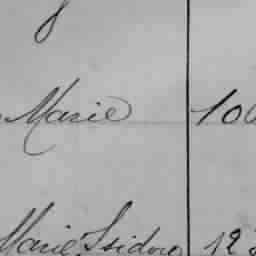 Marie 100
Marie Isidore 12